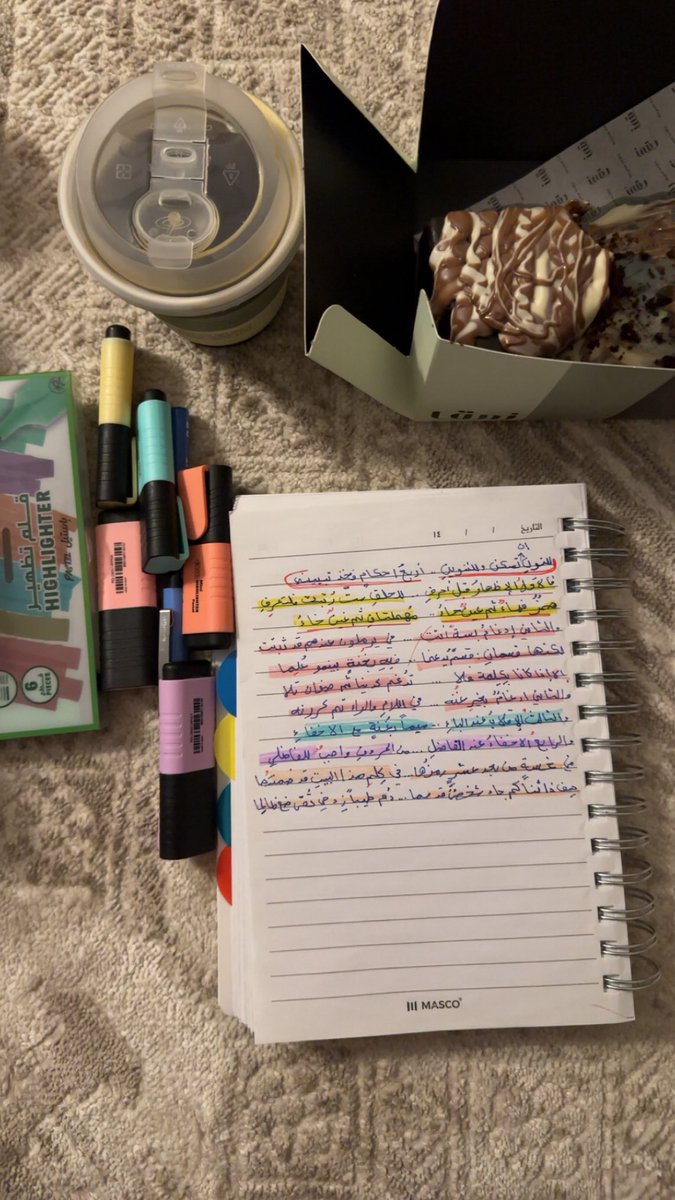 قلم تظهير
باستيل
HIGHLIGHTER
Pastel
6
PIECES
التاريخ / / ١٤
للنون إن تسكن وللتنوين .. أربع أحكام فخذ تبييني
فالأول الإظهار قبل أحرف .. للحلق ست رتبت فلتعرف
همز فهاء ثم عين حاء .. مهملتان ثم غين خاء
والثاني إدغام بستة أتت .. في يرملون عندهم قد ثبتت
لكنها قسمان قسم يدغما .. فيه بغنة بينمو علما
إلا إذا كانا بكلمة فلا .. تدغم كدنيا ثم صنوان تلا
والثاني إدغام بغير غنه .. في اللام والراء ثم كررنه
والثالث الإقلاب عند الباء .. ميماً بغنة مع الاخفاء
والرابع الاخفاء عند الفاضل ... من الحروف واجب للفاضل
في خمسة من بعد عشر رمزها .. في كلم هذا البيت قد ضمنتها
صف ذا ثنا كم جاد شخص قد سما .. دم طيباً زد في تقى ضع ظالما
MASCO